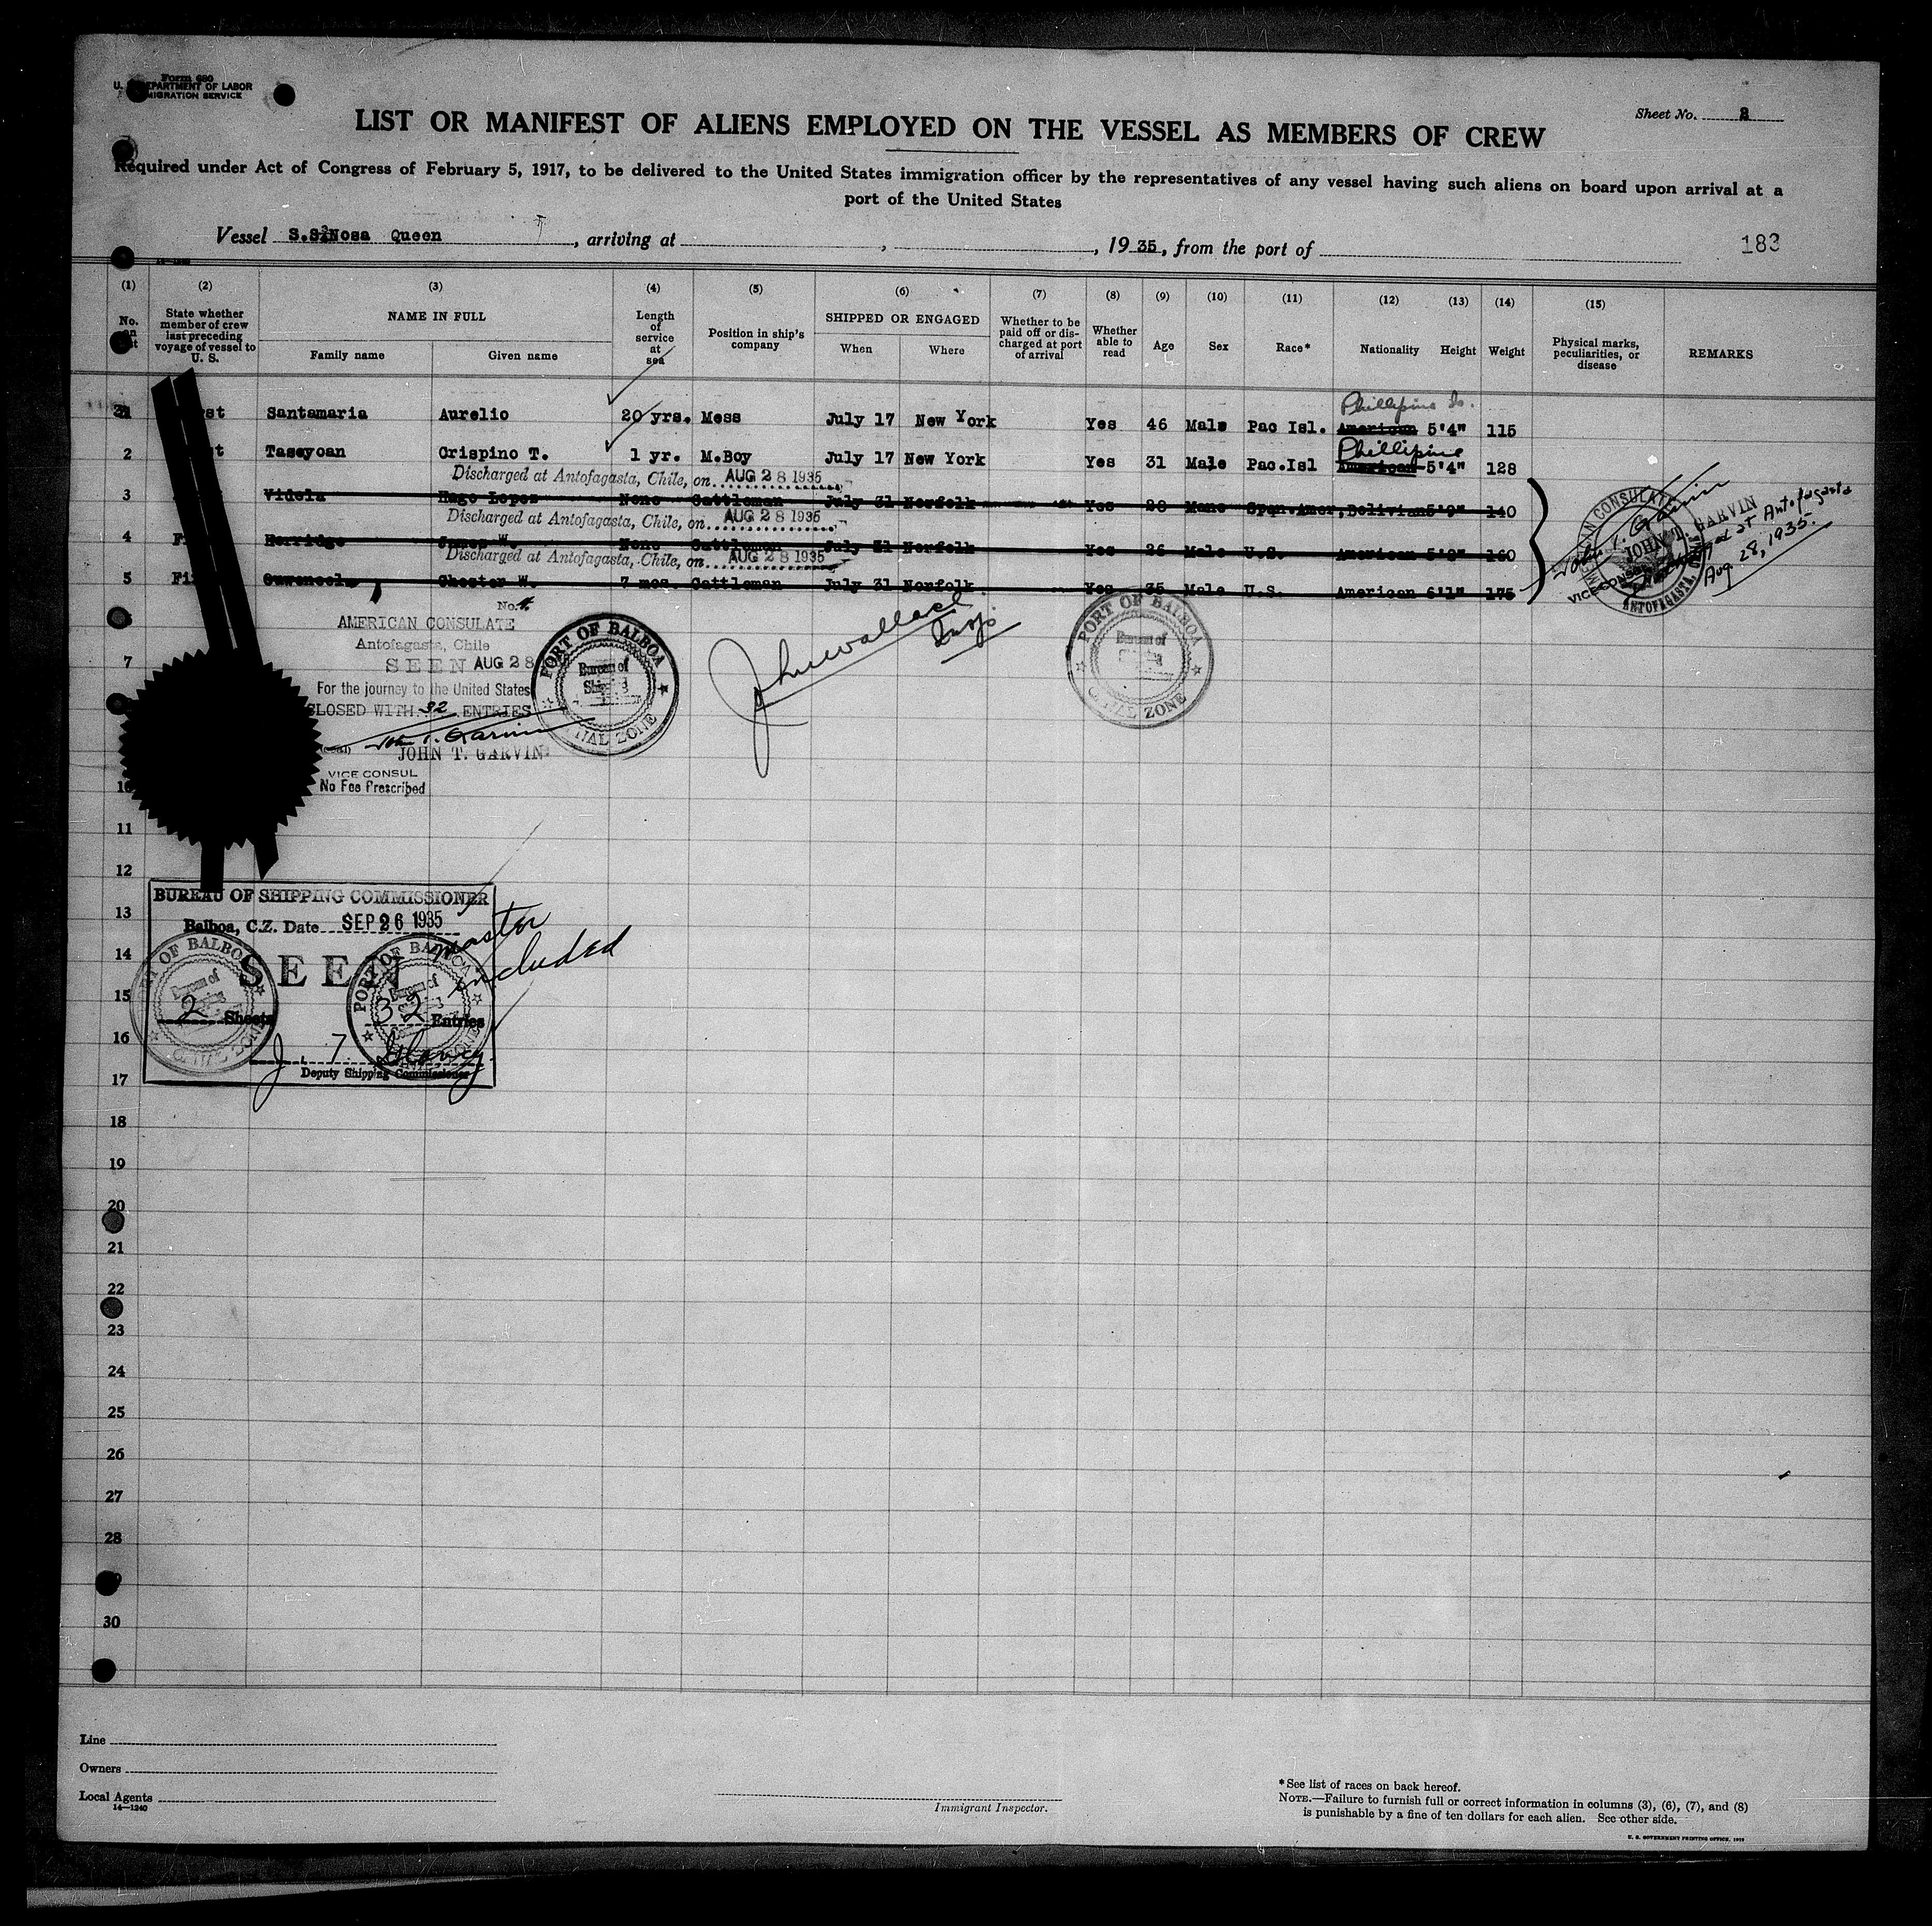 Form 680
U. DEPARTMENT OF LABOR
IMMIGRATION SERVICE
Sheet No. 2
LIST OR MANIFEST OF ALIENS EMPLOYED ON THE VESSEL AS MEMBERS OF CREW
Required under Act of Congress of February 5, 1917, to be delivered to the United States immigration officer by the representatives of any vessel having such aliens on board upon arrival at a
port of the United States
Vessel S.S. Nosa Queen, arriving at , , 19 35, from the port of
183
(1) (2) (3) (4) (5) (6) (7) (8) (9) (10) (11) (12) (13) (14) (15)
No. State whether member of crew last preceding voyage of vessel to U. S. NAME IN FULL Family name Given name Length of service at sea Position in ship's company SHIPPED OR ENGAGED When Where Whether to be paid off or discharged at port of arrival Whether able to read Age Sex Race* Nationality Height Weight Physical marks, peculiarities, or disease REMARKS
Phillipine Is.
Santamaria Aurelio 20 yrs. Mess July 17 New York Yes 46 Male Pac Isl. American 5'4" 115
Phillipine
2 Taseyoan Crispino T. 1 yr. M.Boy July 17 New York Yes 31 Male Pac.Isl American 5'4" 128
Discharged at Antofagasta, Chile, on AUG 28 1935
3 Videla Hugo Lopez None Cattleman July 31 Norfolk Yes 28 Male Span.Amer, Bolivian 5'9" 140
Discharged at Antofagasta, Chile, on AUG 28 1935
4 Herridge James W. None Cattleman July 31 Norfolk Yes 26 Male U.S. American 160
Discharged at Antofagasta, Chile, on AUG 28 1935
5 Chester W. 7 mos. Cattleman July 31 Norfolk Yes 35 Male U.S. American 6'1" 175
AMERICAN CONSULATE
John T. Garvin
JOHN T. GARVIN
VICE CONSUL
at Antofagasta
Aug 28, 1935.
ANTOFAGASTA,
No.
AMERICAN CONSULATE
Antofagasta, Chile
SEEN AUG 28
For the journey to the United States
CLOSED WITH 32 ENTRIES
John T. Garvin
JOHN T. GARVIN
VICE CONSUL
No Fee Prescribed
PORT OF BALBOA
Bureau of
CANAL ZONE
John Wallace
Insp
PORT OF BALBOA
Bureau of
CANAL ZONE
7
10
11
12
13
14
15
16
17
18
19
20
21
22
23
24
25
26
27
28
30
BUREAU OF SHIPPING COMMISSIONER
Balboa, C.Z. Date SEP 26 1935
Master
included
SEEN
2 Sheets 32 Entries
Deputy Shipping Commissioner
PORT OF BALBOA
Bureau of
PORT OF BALBOA
Bureau of
Line
Owners
Local Agents
14—1240
Immigrant Inspector.
*See list of races on back hereof.
NOTE.—Failure to furnish full or correct information in columns (3), (6), (7), and (8)
is punishable by a fine of ten dollars for each alien. See other side.
U. S. GOVERNMENT PRINTING OFFICE